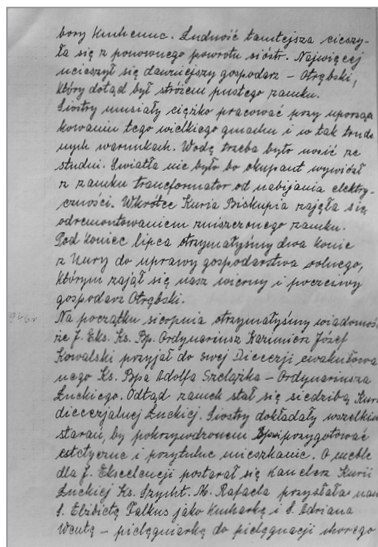 bory kuchenne. Ludność tamtejsza cieszy-
ła się z ponownego powrotu sióstr. Najwięcej
ucieszył się dawniejszy gospodarz – Otrębski,
który dotąd był stróżem pustego zamku.
Siostry musiały ciężko pracować przy uporząd-
kowaniu tego wielkiego gmachu i w tak trud-
nych warunkach. Wodę trzeba było nosić ze
studni. Światła nie było bo okupant wywiózł
z zamku transformator od nabijania elektry-
czności. Wkrótce Kuria Biskupia zajęła się
odremontowaniem zniszczonego zamku.
Pod koniec lipca otrzymałyśmy dwa konie
z Nury do uprawy gospodarstwa rolnego,
którym zajął się nasz wierny i poczciwy
gospodarz Otrębski.
Na początku sierpnia otrzymałyśmy wiadomość
że J. Eks. Ks. Bp. Ordynariusz Kazimierz Józef
Kowalski przyjął do swej Diecezji ewakuowa-
nego Ks. Bpa Adolfa Szelążka – Ordynariusza
Łuckiego. Odtąd zamek stał się siedzibą Kurii
diecezjalnej Łuckiej. Siostry dokładały wszelkich
starań, by pokrzywdzonemu przygotować
estetyczne i przytulne mieszkanie. O meble
dla J. Ekscelencji postarał się Kanclerz Kurii
Łuckiej Ks. M. Rafaela przysłała nam
S. Elżbietę Palkus jako kucharkę i S. Adriana
– pielęgniarkę do pielęgnacji chorego